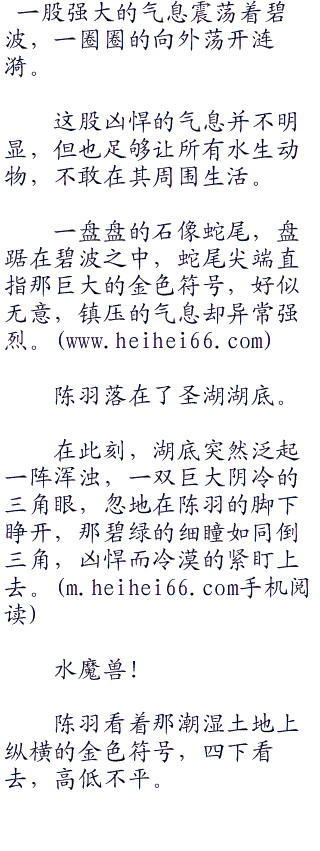 一股强大的气息震荡着碧
波，一圈圈的向外荡开涟
漪。
这股凶悍的气息并不明
显，但也足够让所有水生动
物，不敢在其周围生活。
一盘盘的石像蛇尾，盘
踞在碧波之中，蛇尾尖端直
指那巨大的金色符号，好似
无意，镇压的气息却异常强
烈。(www.heihei66.com)
陈羽落在了圣湖湖底。
在此刻，湖底突然泛起
一阵浑浊，一双巨大阴冷的
三角眼，忽地在陈羽的脚下
睁开，那碧绿的细瞳如同倒
三角，凶悍而冷漠的紧盯上
去。(m.heihei66.com手机阅
读)
水魔兽！
陈羽看着那潮湿土地上
纵横的金色符号，四下看
去，高低不平。